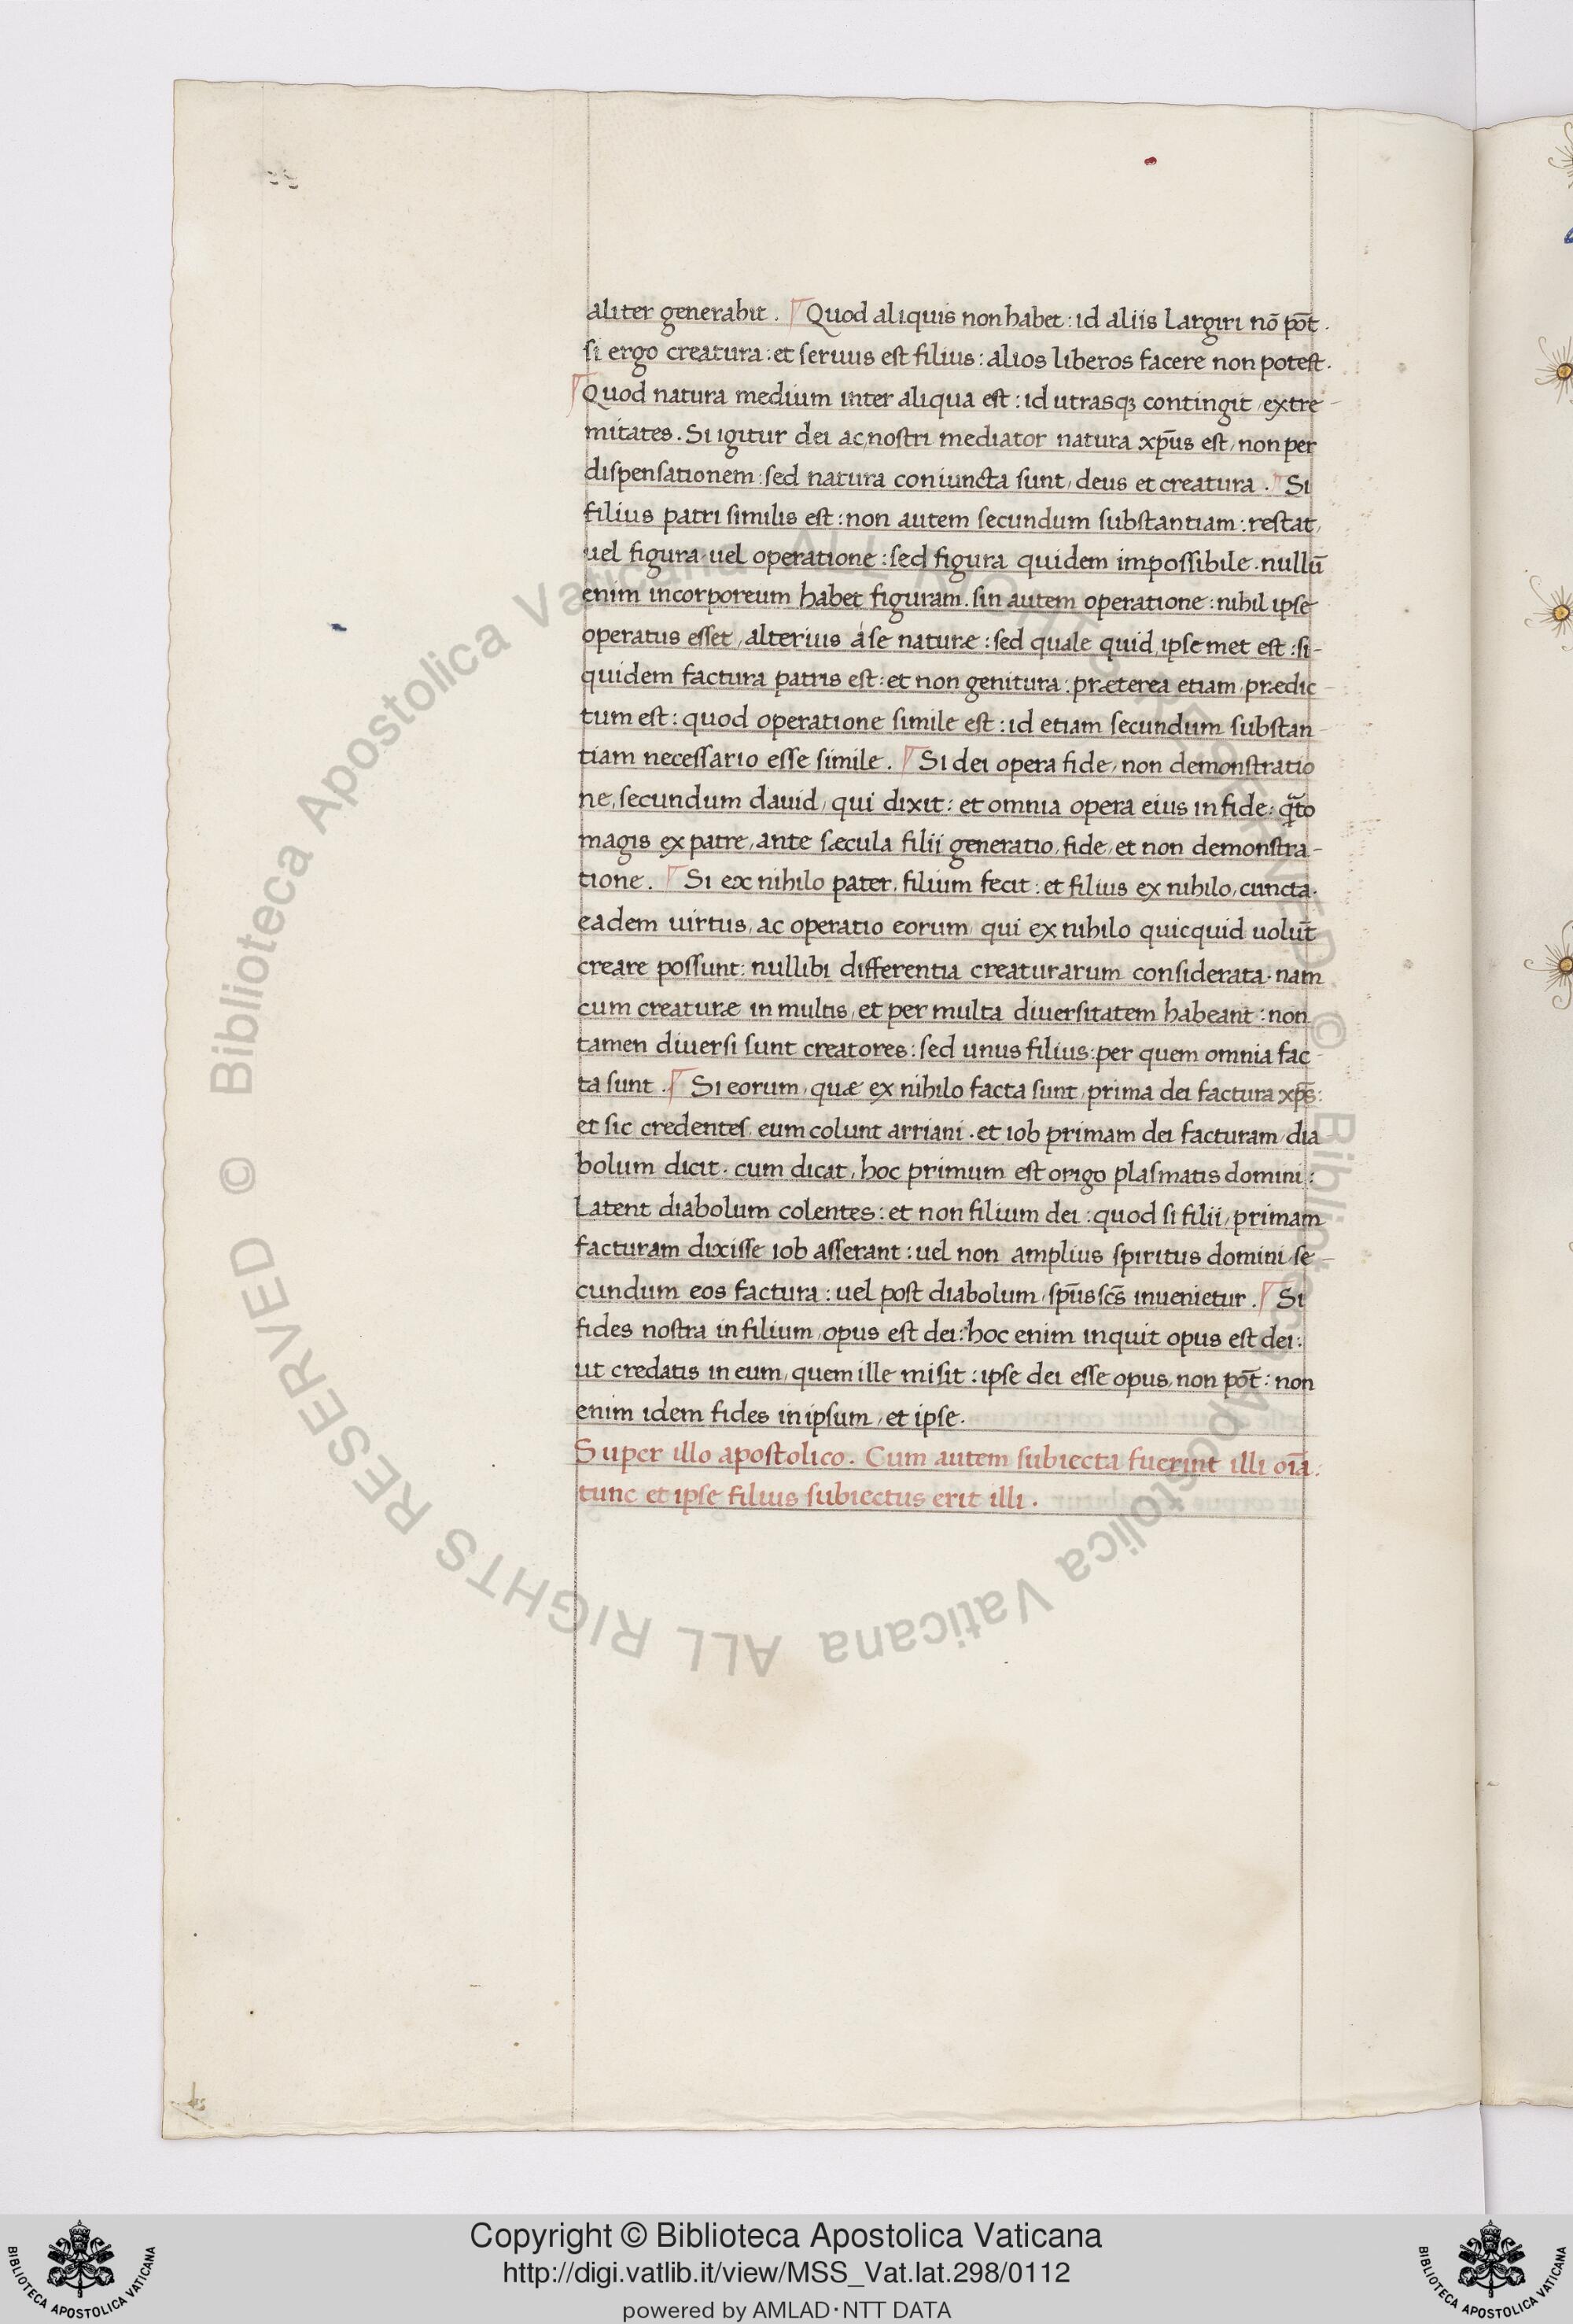 aliter generabit. Quod aliquis non habet: id aliis largiri nō pōt.
si ergo creatura: et seruus est filius: alios liberos facere non potest.
Quod natura medium inter aliqua est: id utrasqꝫ contingit, extre-
mitates. Si igitur dei ac nostri mediator natura xp̄us est, non per
dispensationem: sed natura coniuncta sunt, deus et creatura. Si
filius patri similis est: non autem secundum substantiam: restat,
uel figura uel operatione: sed figura quidem impossibile. nullū
enim incorporeum habet figuram. sin autem operatione: nihil ipse
operatus esset, alterius áse naturæ: sed quale quid, ipse met est: si-
quidem factura patris est: et non genitura: præterea etiam, prædic-
tum est: quod operatione simile est: id etiam secundum substan-
tiam necessario esse simile. Si dei opera fide, non demonstratio
ne, secundum dauid, qui dixit: et omnia opera eius in fide: q̄to
magis ex patre, ante sæcula filii generatio, fide, et non demonstra-
tione. Si ex nihilo pater, filium fecit: et filius ex nihilo, cuncta.
eadem uirtus, ac operatio eorum, qui ex nihilo quicquid uolūt
creare possunt: nullibi differentia creaturarum considerata. nam
cum creaturæ in multis, et per multa diuersitatem habeant: non
tamen diuersi sunt creatores: sed unus filius: per quem omnia fac-
ta sunt. Si eorum, quæ ex nihilo facta sunt, prima dei factura xp̄s:
et sic credentes, eum colunt arriani. et iob primam dei facturam, dia
bolum dicit. cum dicat, hoc primum est origo plasmatis domini:
Latent diabolum colentes: et non filium dei: quod si filii, primam
facturam dixisse iob asserant: uel non amplius spiritus domini, se-
cundum eos factura: uel post diabolum, sp̄us sc̄s inuenietur. Si
fides nostra in filium, opus est dei: hoc enim inquit opus est dei:
ut credatis in eum, quem ille misit: ipse dei esse opus, non pōt: non
enim idem fides in ipsum, et ipse.
Super illo apostolico. Cum autem subiecta fuerint illi oīa:
tunc et ipse filius subiectus erit illi.
© Biblioteca Apostolica Vaticana ALL RIGHTS RESERVED © Biblioteca Apostolica Vaticana ALL RIGHTS RESERVED
BIBLIOTECA APOSTOLICA VATICANA
Copyright © Biblioteca Apostolica Vaticana
http://digi.vatlib.it/view/MSS_Vat.lat.298/0112
powered by AMLAD·NTT DATA
BIBLIOTECA APOSTOLICA VATICANA